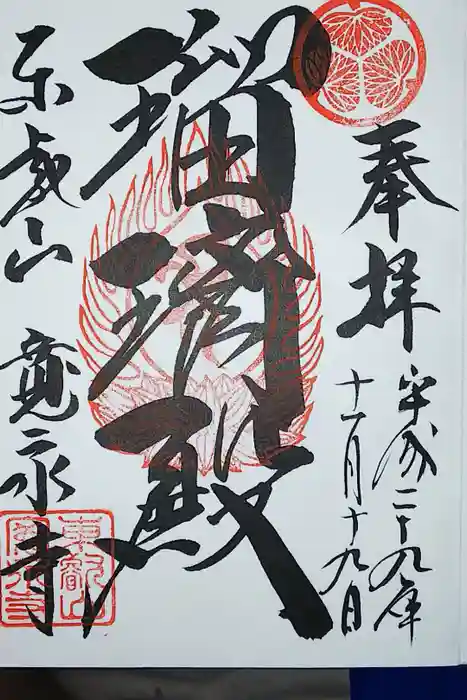 奉拝
平成二十九年
十一月十九日
瑠璃殿
東叡山 寛永寺
東叡山